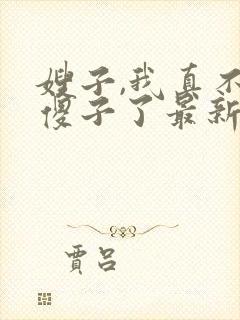 嫂子,我真不
傻子了最新
贾吕